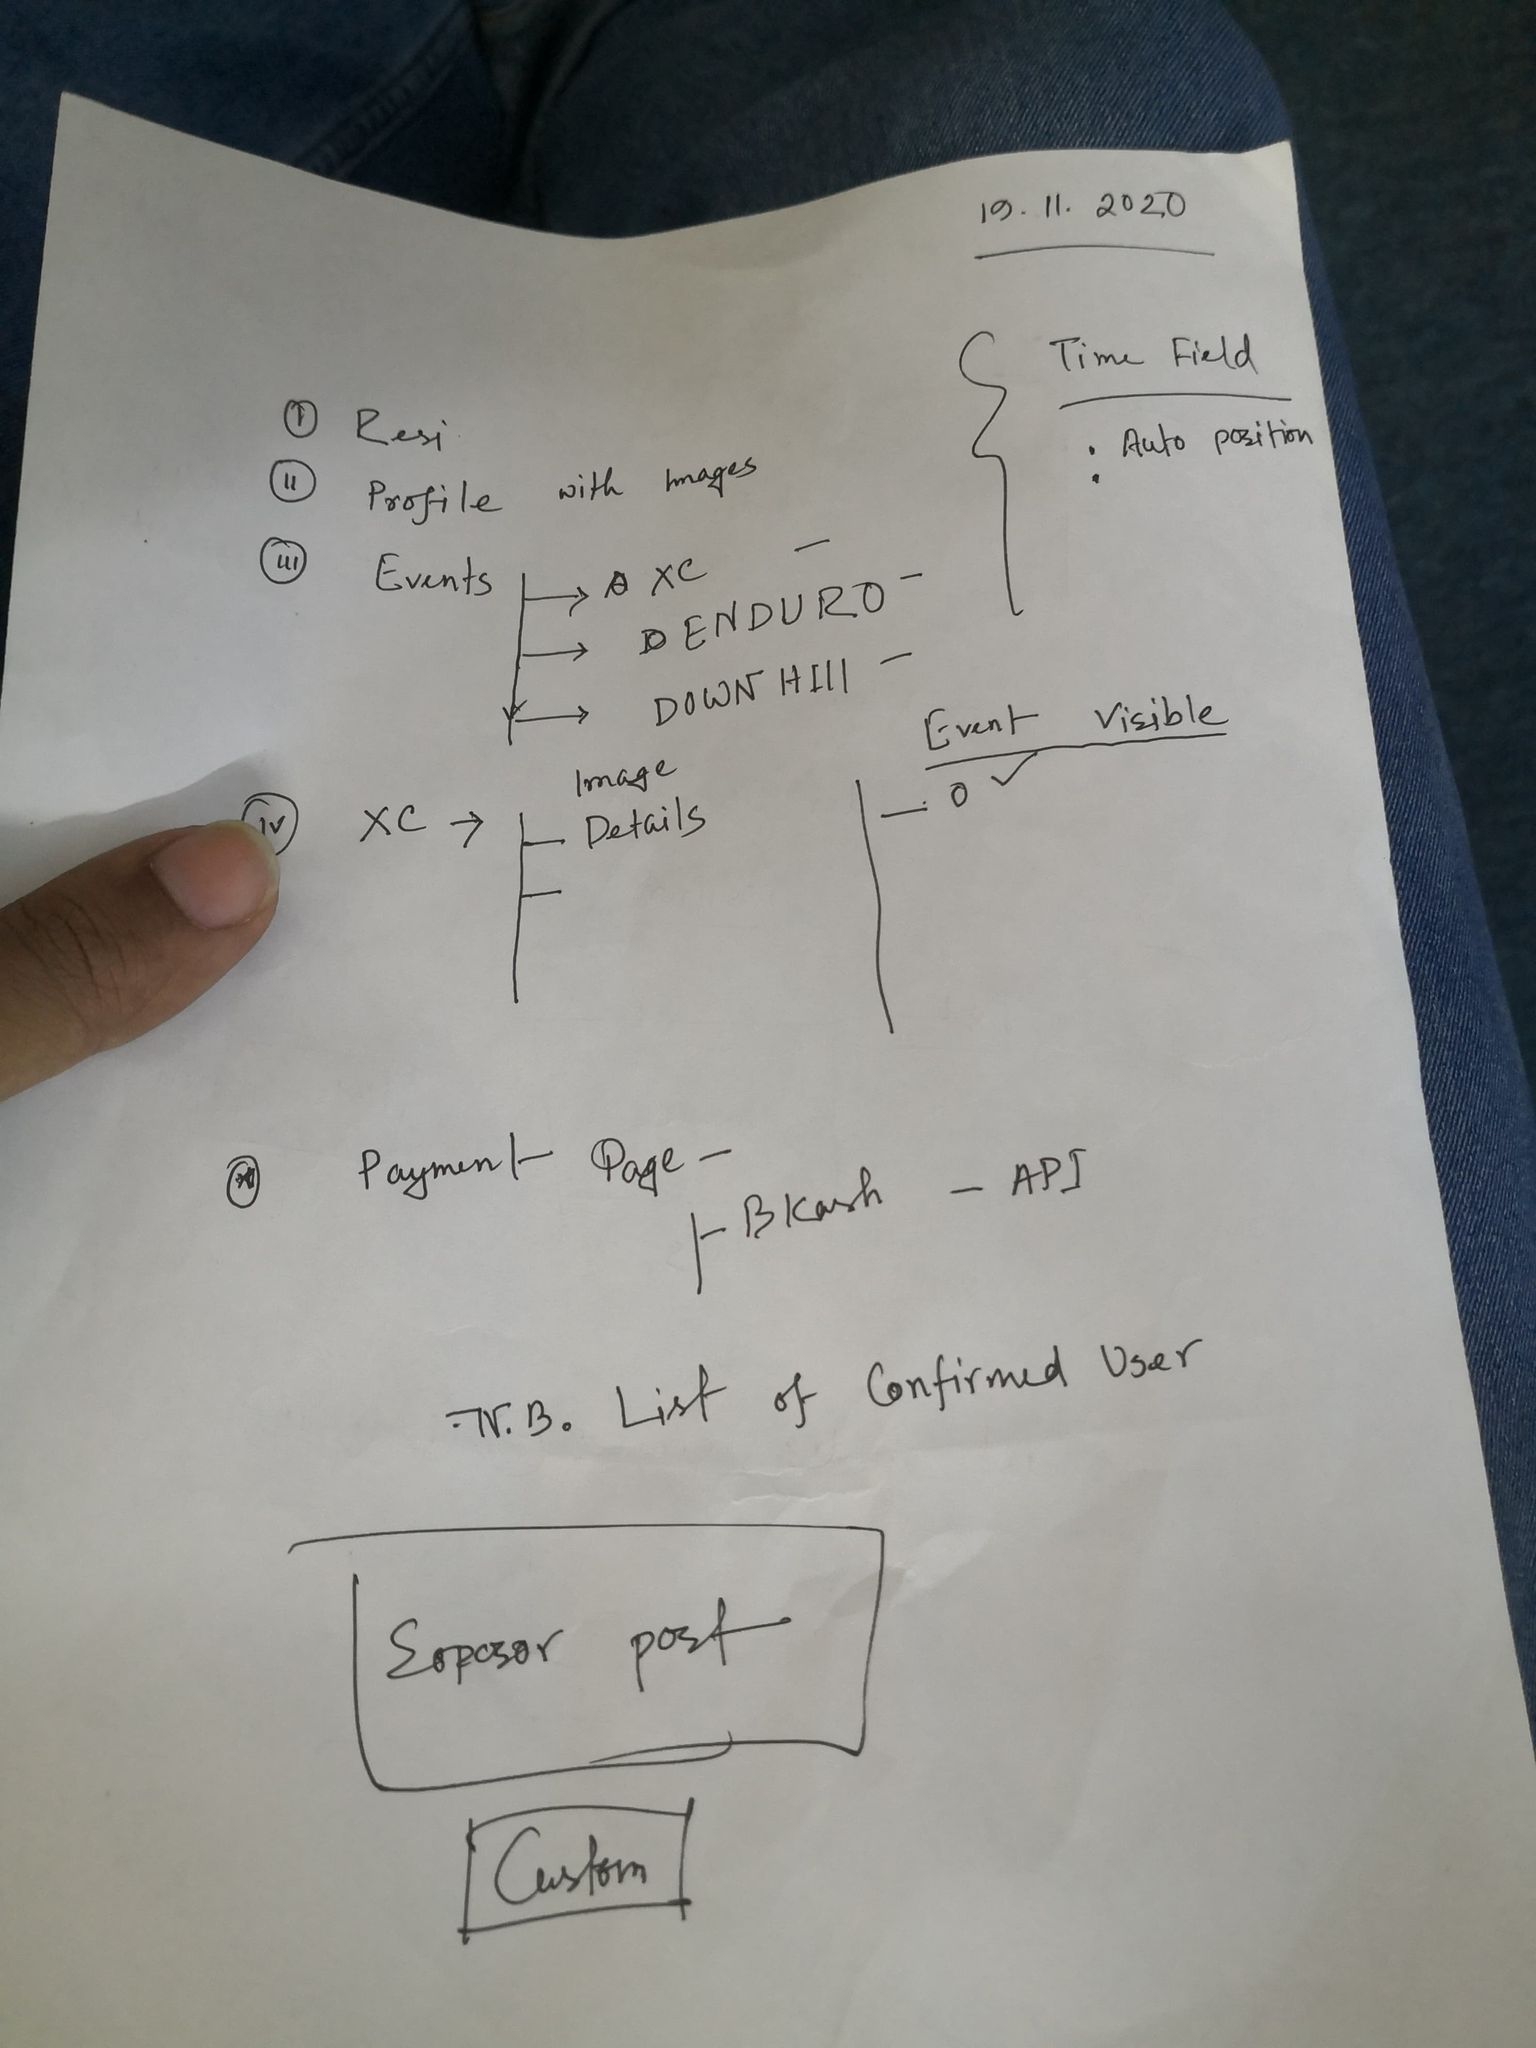 19. 11. 2020
Time Field
: Auto position
(i) Resi
(ii) Profile with Images
(iii) Events
→ XC –
→ ENDURO –
→ DOWN HIll –
Event Visible
– 0 ✓
(iv) XC →
Image
Details
Payment Page –
BKash – API
N.B. List of Confirmed User
post
Custom